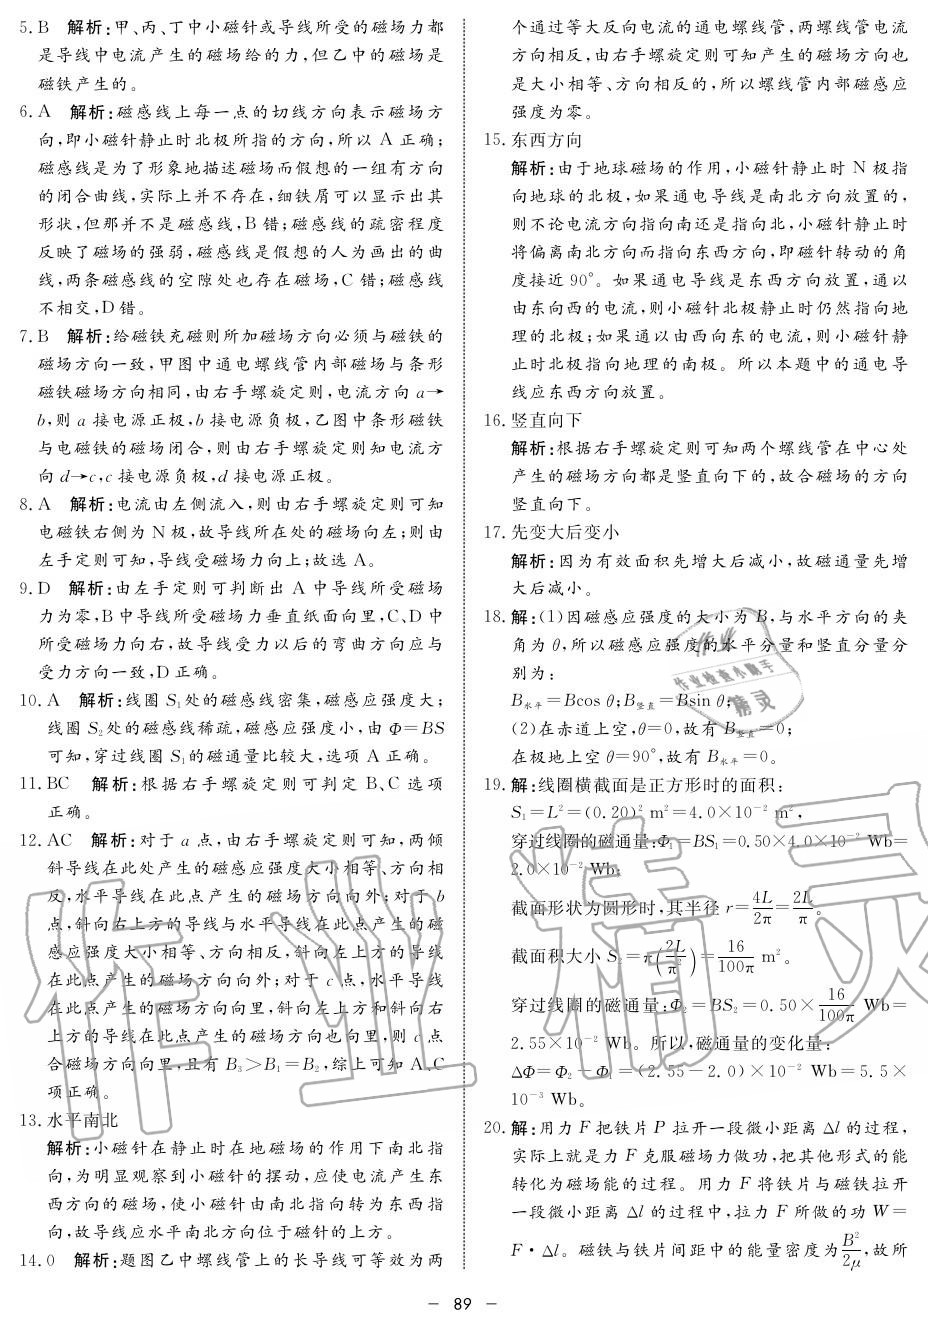 5. B　解析:甲、丙、丁中小磁针或导线所受的磁场力都
是导线中电流产生的磁场给的力,但乙中的磁场是
磁铁产生的。
6. A　解析:磁感线上每一点的切线方向表示磁场方
向,即小磁针静止时北极所指的方向,所以 A 正确;
磁感线是为了形象地描述磁场而假想的一组有方向
的闭合曲线,实际上并不存在,细铁屑可以显示出其
形状,但那并不是磁感线,B 错;磁感线的疏密程度
反映了磁场的强弱,磁感线是假想的人为画出的曲
线,两条磁感线的空隙处也存在磁场,C 错;磁感线
不相交,D 错。
7. B　解析:给磁铁充磁则所加磁场方向必须与磁铁的
磁场方向一致,甲图中通电螺线管内部磁场与条形
磁铁磁场方向相同,由右手螺旋定则,电流方向 a→
b,则 a 接电源正极,b 接电源负极,乙图中条形磁铁
与电磁铁的磁场闭合,则由右手螺旋定则知电流方
向 d→c,c 接电源负极,d 接电源正极。
8. A　解析:电流由左侧流入,则由右手螺旋定则可知
电磁铁右侧为 N 极,故导线所在处的磁场向左;则由
左手定则可知,导线受磁场力向上;故选 A。
9. D　解析:由左手定则可判断出 A 中导线所受磁场
力为零,B 中导线所受磁场力垂直纸面向里,C、D 中
所受磁场力向右,故导线受力以后的弯曲方向应与
受力方向一致,D 正确。
10. A　解析:线圈 S₁处的磁感线密集,磁感应强度大;
线圈 S₂处的磁感线稀疏,磁感应强度小,由 Φ=BS
可知,穿过线圈 S₁的磁通量比较大,选项 A 正确。
11. BC　解析:根据右手螺旋定则可判定 B、C 选项
正确。
12. AC　解析:对于 a 点,由右手螺旋定则可知,两倾
斜导线在此处产生的磁感应强度大小相等、方向相
反,水平导线在此点产生的磁场方向向外;对于 b
点,斜向右上方的导线与水平导线在此点产生的磁
感应强度大小相等、方向相反,斜向左上方的导线
在此点产生的磁场方向向外;对于 c 点,水平导线
在此点产生的磁场方向向里,斜向左上方和斜向右
上方的导线在此点产生的磁场方向也向里,则 c 点
合磁场方向向里,且有 B₃>B₁=B₂,综上可知 A、C
项正确。
13. 水平南北
解析:小磁针在静止时在地磁场的作用下南北指
向,为明显观察到小磁针的摆动,应使电流产生东
西方向的磁场,使小磁针由南北指向转为东西指
向,故导线应水平南北方向位于磁针的上方。
14. 0　解析:题图乙中螺线管上的长导线可等效为两
个通过等大反向电流的通电螺线管,两螺线管电流
方向相反,由右手螺旋定则可知产生的磁场方向也
是大小相等、方向相反的,所以螺线管内部磁感应
强度为零。
15. 东西方向
解析:由于地球磁场的作用,小磁针静止时 N 极指
向地球的北极,如果通电导线是南北方向放置的,
则不论电流方向指向南还是指向北,小磁针静止时
将偏离南北方向而指向东西方向,即磁针转动的角
度接近 90°。如果通电导线是东西方向放置,通以
由东向西的电流,则小磁针北极静止时仍然指向地
理的北极;如果通以由西向东的电流,则小磁针静
止时北极指向地理的南极。所以本题中的通电导
线应东西方向放置。
16. 竖直向下
解析:根据右手螺旋定则可知两个螺线管在中心处
产生的磁场方向都是竖直向下的,故合磁场的方向
竖直向下。
17. 先变大后变小
解析:因为有效面积先增大后减小,故磁通量先增
大后减小。
18. 解:(1)因磁感应强度的大小为 B,与水平方向的夹
角为 θ,所以磁感应强度的水平分量和竖直分量分
别为:
B水平=Bcos θ;B竖直=Bsin θ;
(2)在赤道上空,θ=0,故有 B竖直=0;
在极地上空 θ=90°,故有 B水平=0。
19. 解:线圈横截面是正方形时的面积:
S₁=L²=(0.20)² m²=4.0×10⁻² m²,
穿过线圈的磁通量:Φ₁=BS₁=0.50×4.0×10⁻² Wb=
2.0×10⁻² Wb;
截面形状为圆形时,其半径 r=4L/2π=2L/π。
截面积大小 S₂=π(2L/π²)=16/100π m²。
穿过线圈的磁通量:Φ₂=BS₂=0.50×16/100π Wb=
2.55×10⁻² Wb。所以,磁通量的变化量:
ΔΦ=Φ₂-Φ₁=(2.55-2.0)×10⁻² Wb=5.5×
10⁻³ Wb。
20. 解:用力 F 把铁片 P 拉开一段微小距离 Δl 的过程,
实际上就是力 F 克服磁场力做功,把其他形式的能
转化为磁场能的过程。用力 F 将铁片与磁铁拉开
一段微小距离 Δl 的过程中,拉力 F 所做的功 W=
F·Δl。磁铁与铁片间距中的能量密度为B²/2μ,故所
- 89 -
作业精灵
作业
作业检查小助手
精灵